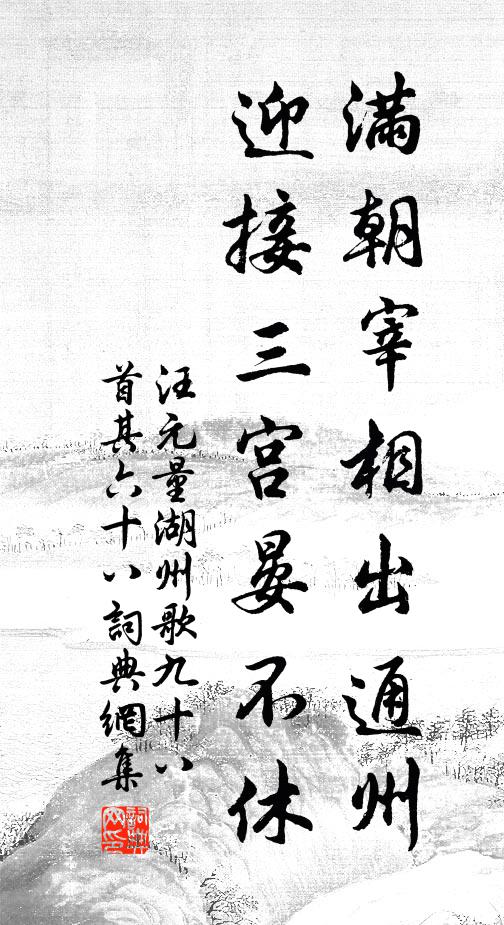 滿朝宰相出通州
迎接三宮晏不休
汪元量湖州歌九十八
首其六十八詞典網集